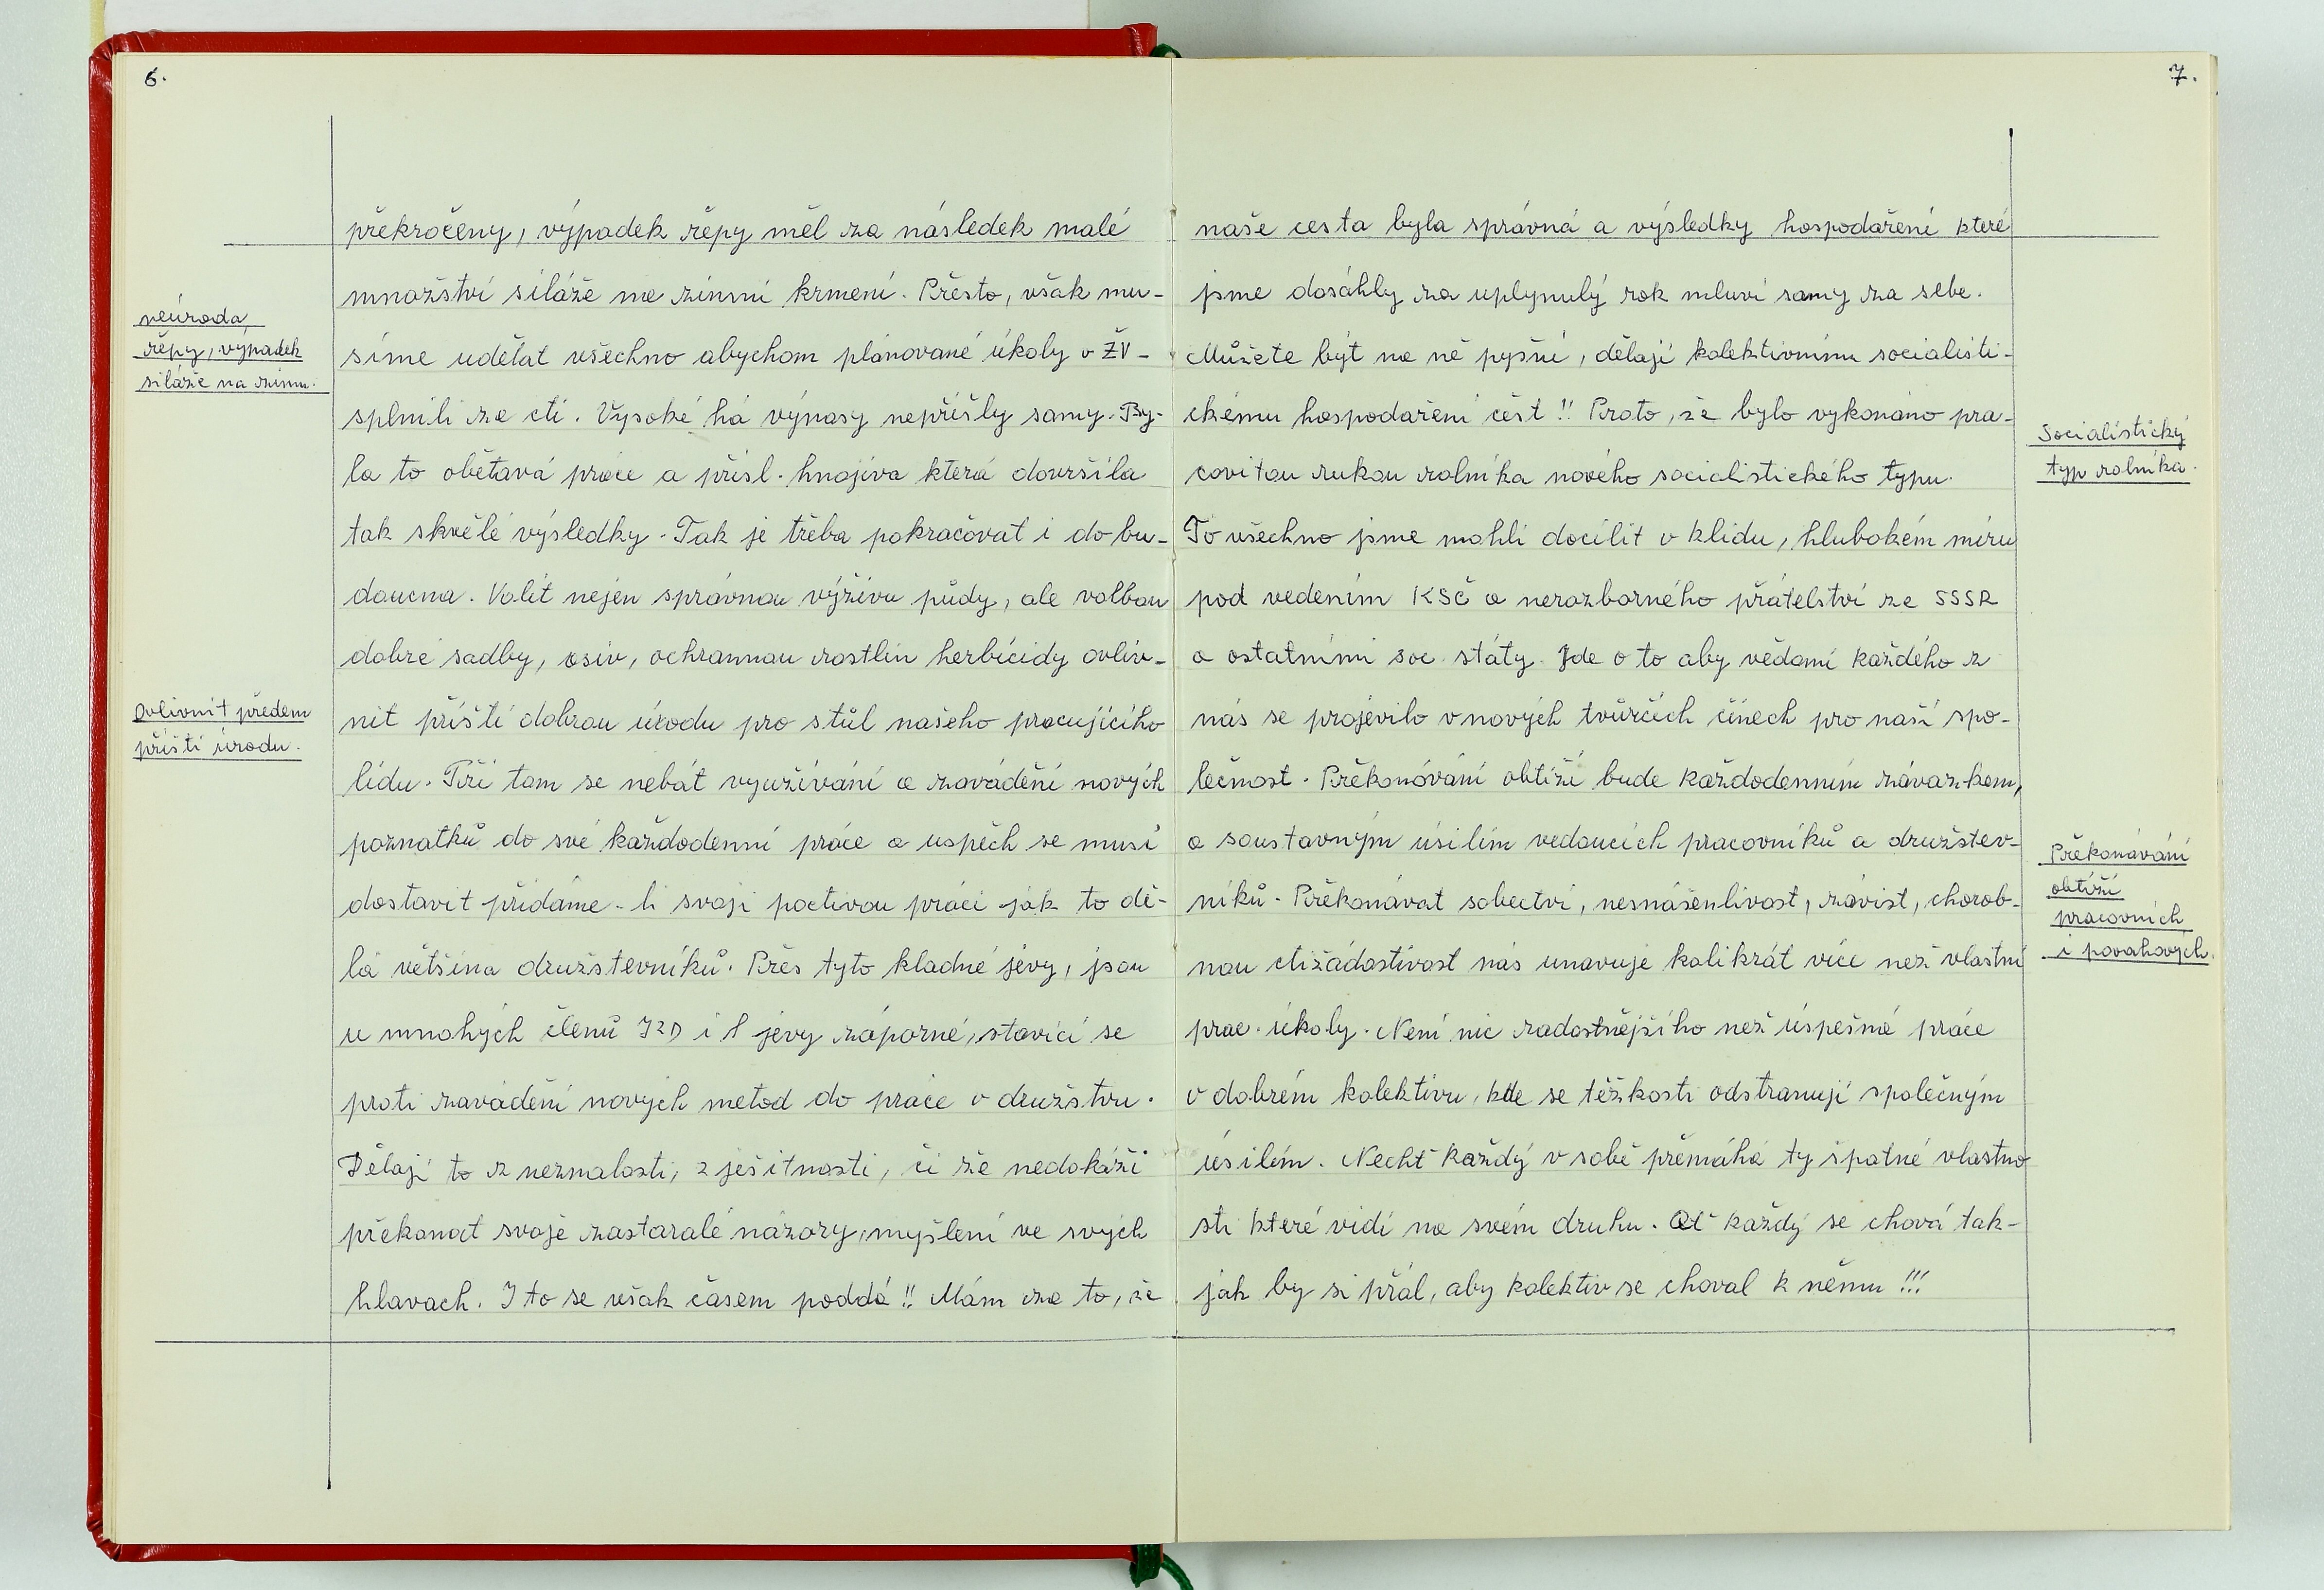 6.
překročeny, výpadek řepy měl za následek malé
množství siláže na zimní krmení. Přesto, však mu-
síme udělat všechno abychom plánované úkoly v ŽV-
splnili ze ctí. Vysoké há výnasy nepřišly samy. By-
la to obětavá práce a přísl. hnojiva která dovršila
tak skvělé výsledky. Tak je třeba pokračovat i do bu-
doucna. Volit nejen správnou výživu půdy, ale volbou
dobré sadby, osiv, ochrannou rostlin herbicidy ovliv-
nit příští dobrou úrodu pro stůl našeho pracujícího
lidu. Při tom se nebát využívání a zavádění nových
poznatků do své každodenní práce a uspěch se musí
dostavit přidáme-li svoji poctivou práci jak to dě-
lá většina družstevníků. Přes tyto kladné jevy, jsou
u mnohých členů JZD i jevy záporné, stavící se
proti zavádění nových metod do práce v družstvu.
Dělají to z neznalosti, z ješitnosti, či že nedokáží
překonat svoje zastaralé názory, myšlení ve svých
hlavach. I to se však časem poddá!! Mám za to, že
neúroda
řepy, výpadek
siláže na zimu.
Ovlivnit předem
příští úrodu.
7.
naše cesta byla správná a výsledky hospodaření které
jsme dosáhly za uplynulý rok mluví samy za sebe.
Můžete být na ně pyšní, dělají kolektivnímu socialisti-
ckému hospodaření čest!! Proto, že bylo vykonáno pra-
covitou rukou rolníka nového socialistického typu.
To všechno jsme mohli docílit v klidu, hlubokém míru
pod vedením KSČ a nerozborného přátelství ze SSSR
a ostatními soc. státy. Jde o to aby vědomí každého z
nás se projevilo v nových tvůrčích činech pro naší spo-
lečnost. Překonávání obtíží bude každodenním závazkem,
a soustavným úsilím vedoucích pracovníků a družstev-
níků. Překonávat sobectví, nesnášenlivost, závist, chorob-
nou ctižádostivost nás unavuje kolikrát více než vlastní
prac. úkoly. Není nic radostnějšího než úspešná práce
v dobrém kolektivu, kde se těžkosti odstranují společným
úsilím. Nechť každý v sobě přemáhá ty špatné vlastno
sti které vidí na svém druhu. Ať každý se chová tak-
jak by si přál, aby kolektiv se choval k němu!!!
Socialistický
typ rolníka.
Překonávání
obtíží
pracovních
i povahových.